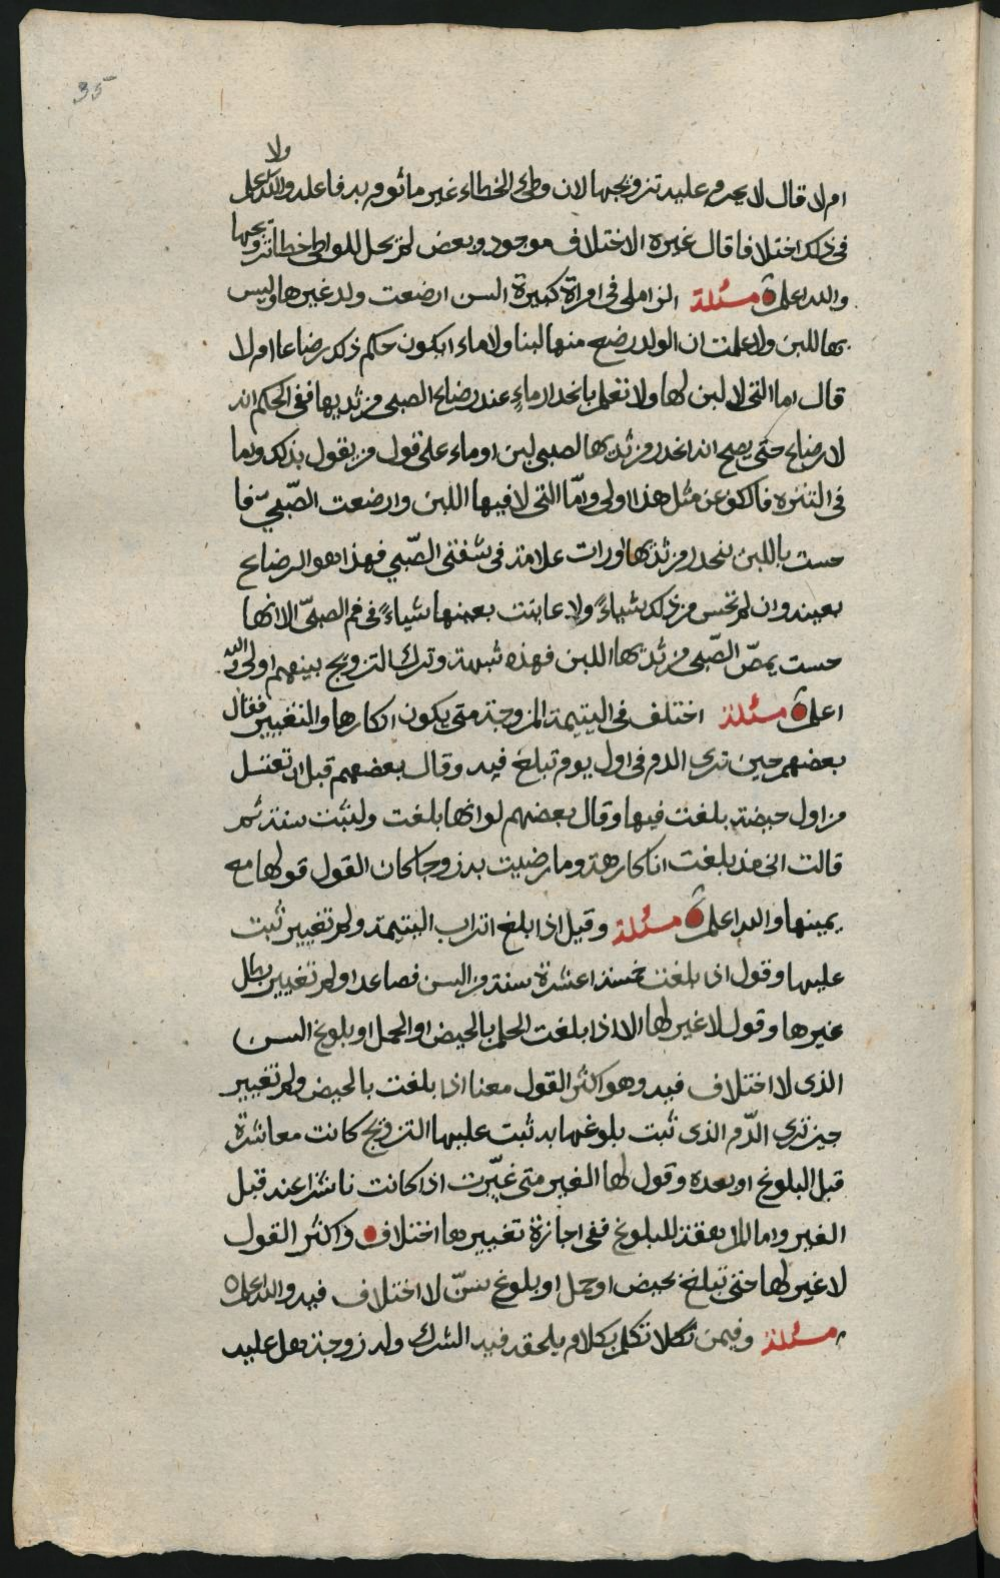 35
ولا
ام لا قال لا يحرم عليه تزويجها لان وطئ الخطاء غير ماثوم به فاعله والله اعلم
في ذلك اختلافا قال غيره الاختلاف موجود وبعض لم يحل للواطي خطا تزويجها
والله اعلم مسئلة الزاملي في امراة كبيرة السن ارضعت ولد غيرها وليس
بها للبن ولا علمت ان الولد رضع منها لبنا ولا ماء ايكون حكم ذلك رضاعا ام لا
قال اما التي لا لبن لها ولا تعلم بانحدار ماءٍ عند رضاع الصبي من ثديها ففي الحكم انه
لا رضاع حتى يصح انه انحدر من ثديها لصبي لبن او ماء على قول من يقول بذلك واما
في التنزه فالكف عن مثل هذا اولى وامّا التي لا فيها اللبن وارضعت الصّبيّ فا
حست باللبن ينحدر من ثديها ورات علامة في شفتي الصّبي فهذا هو الرضاع
بعينه وان لم تحس من ذلك شياءً ولا عاينت بعينها شياءً في فم الصبيّ الا انها
حست يمصّ الصّبي من ثديها اللبن فهذه شبهة وترك التزويج بينهم اولى والله
اعلم مسئلة اختلف في اليتيمة المزوجة متى يكون انكارها والتغيير فقال
بعضهم حين ترى الدم في اول يوم تبلغ فيه وقال بعضهم قبل ان تغتسل
من اول حيضة بلغت فيها وقال بعضهم لو انها بلغت ولبثت سنة ثم
قالت اني منذ بلغت انا كارهة وما رضيت به زوجا كان القول قولها مع
يمينها والله اعلم مسئلة وقيل اذا بلغ اتراب اليتيمة ولم تغيير ثبت
عليها وقول اذا بلغت خمسة اعشرة سنة من السن فصاعدا ولم تغيير بطل
غيرها وقول لا غير لها الا اذا بلغت الحلم بالحيض او الحمل او بلوغ السن
الذي لا اختلاف فيه وهو اكثر القول معنا اذا بلغت بالحيض ولم تغيير
حين ترى الدّم الذي ثبت بلوغها به ثبت عليها التزويج كانت معاشرة
قبل البلوغ او بعده وقول لها الغير متى غيّرت اذا كانت ناشزا عنه قبل
الغير واما المراهقة للبلوغ ففي اجازة تغييرها اختلاف واكثر القول
لا غير لها حتى تبلغ بحيض او حمل او بلوغ سنّ لا اختلاف فيه والله اعلم
مسئلة وفيمن تكلم بكلام يلحقه فيه الشرك وله زوجة هل عليه